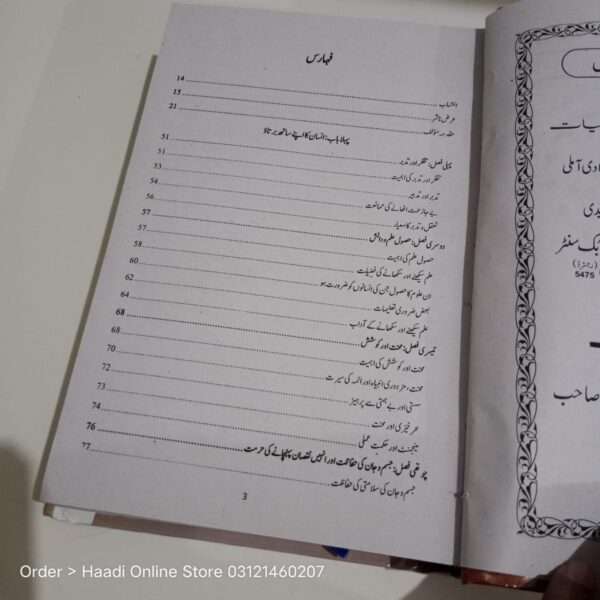 فہارس
انتساب 14
عرض ناشر 15
مقدمہ مؤلف 21
پہلا باب: انسان کا اپنے ساتھ برتاؤ
پہلی فصل: تفکر اور تدبر 51
تفکر اور تدبر کی اہمیت 51
تدبر اور تدبیر 53
بے جا زحمت اٹھانے کی ممانعت 54
تعقل، تدبر کا معیار 56
دوسری فصل: حصول علم و دانش 57
حصول علم کی اہمیت 57
علم سیکھنے اور سکھانے کی فضیلت 58
ان علوم کا حصول جن کی انسانوں کو ضرورت ہو 60
بعض ضروری تعلیمات 62
علم سیکھنے اور سکھانے کے آداب 64
تیسری فصل: محنت اور کوشش 68
محنت اور کوشش کی اہمیت 68
محنت مزدوری انبیاء اور ائمہ کی سیرت 70
سستی اور بے ہمتی سے پرہیز 72
سحر خیزی اور محنت 73
مینجمنٹ اور حکمت عملی 74
چوتھی فصل: جسم و جان کی حفاظت اور انہیں نقصان پہنچانے کی حرمت 76
جسم و جان کی سلامتی کی حفاظت 77
3
یات
ادی آملی
یدی
بک سنٹر
(رجسٹرڈ)
5475
صاحب
Order > Haadi Online Store 03121460207